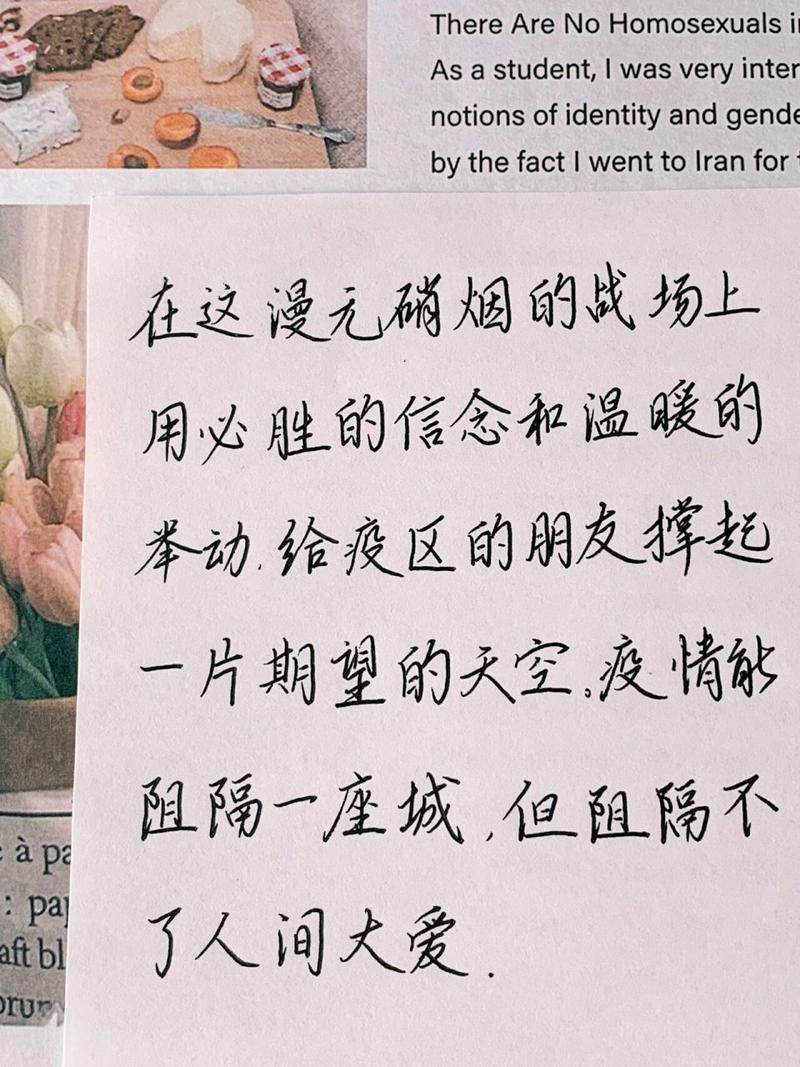 There Are No Homosexuals i
As a student, I was very inter
notions of identity and gende
by the fact I went to Iran for
在这漫无硝烟的战场上
用必胜的信念和温暖的
举动.给疫区的朋友撑起
一片期望的天空。疫情能
阻隔一座城,但阻隔不
了人间大爱.
à pa
: pap
aft bl
orun